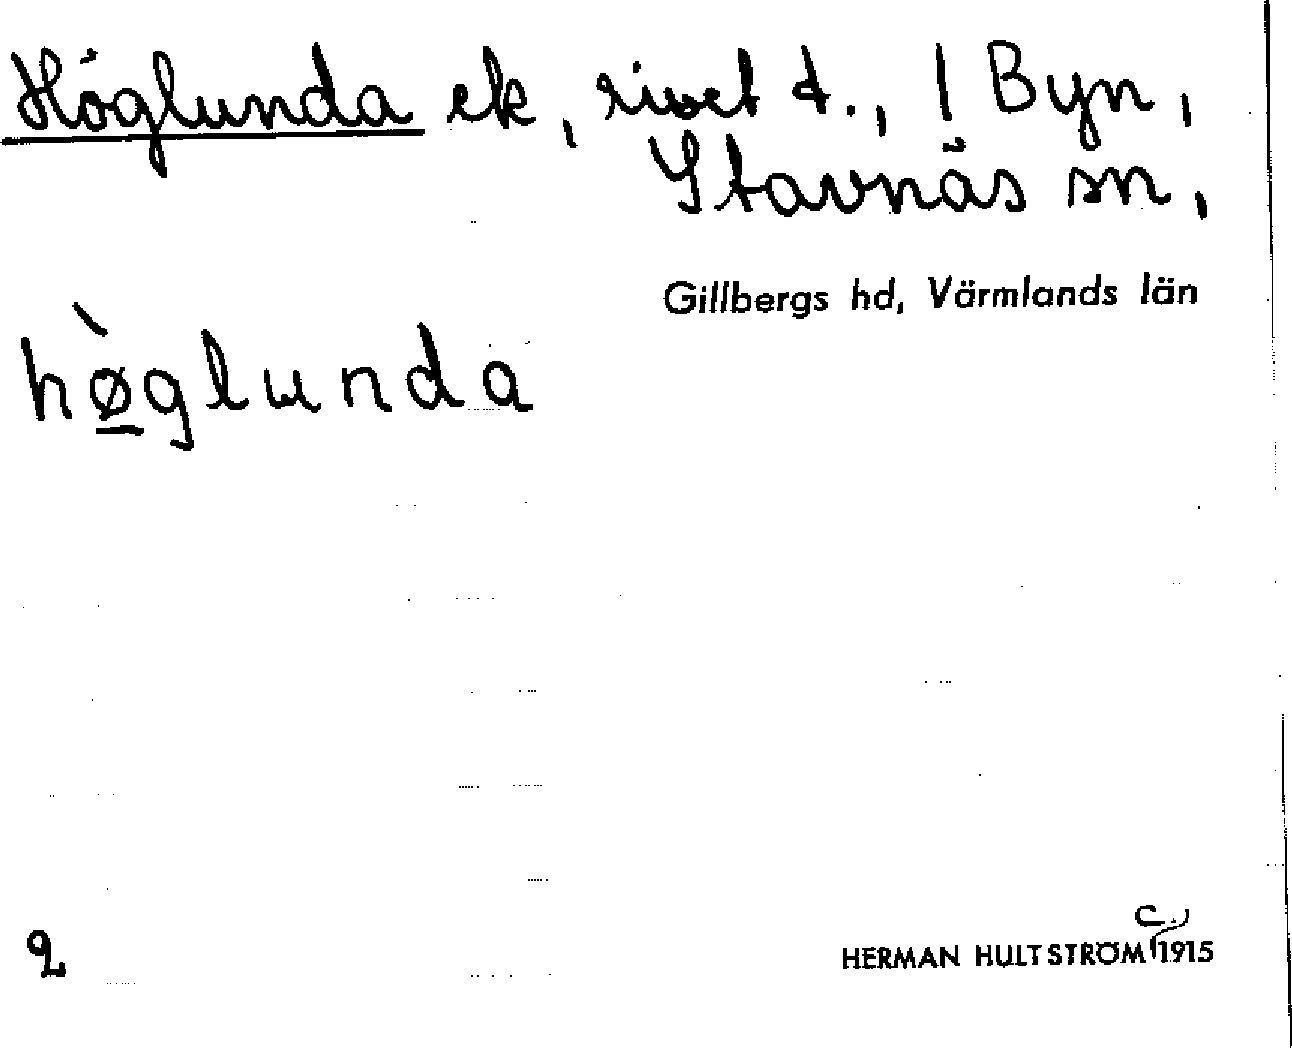 Höglunda ek, rivet t., 1 Byn,
Stavnäs sn,
Gillbergs hd, Värmlands län
hø̀glunda
2 HERMAN HULTSTRÖM c. 1915